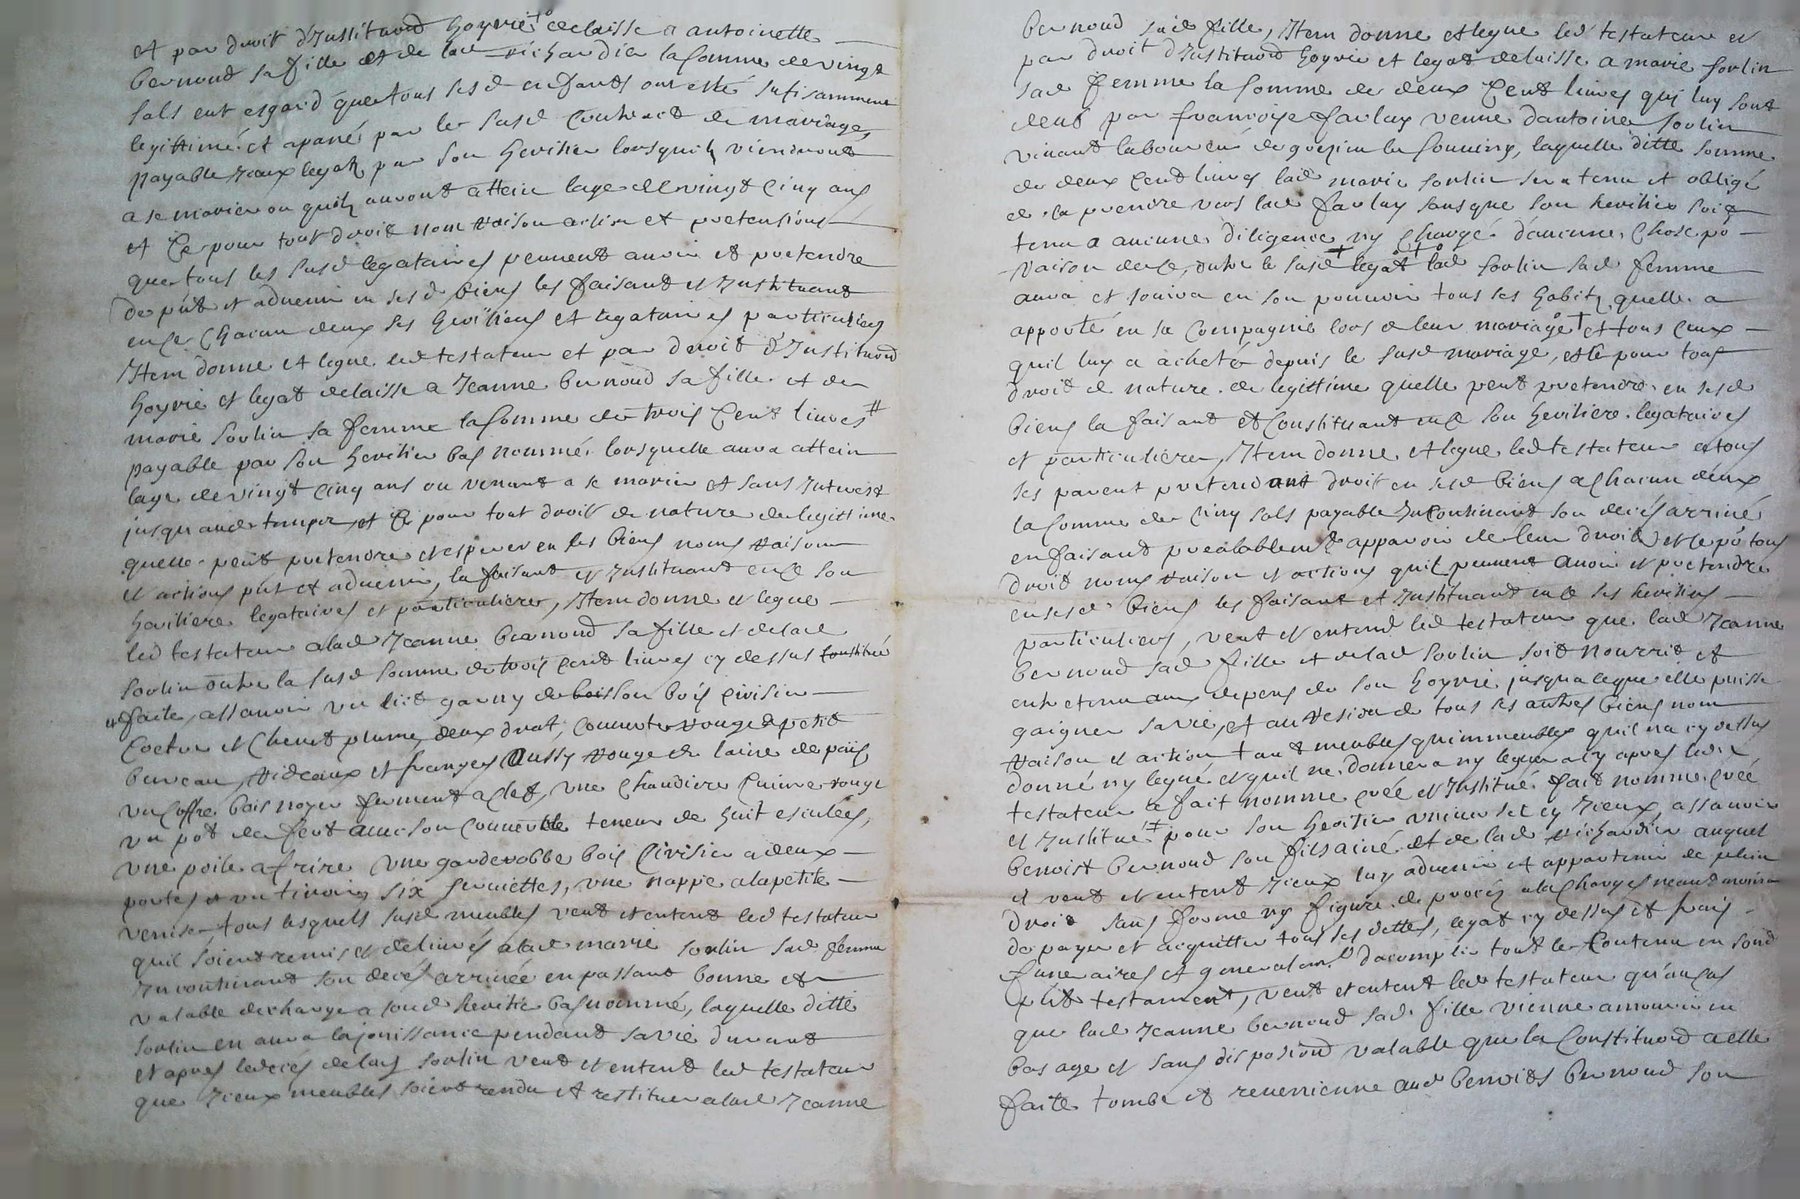 et par droit d'Institu(ti)ond hoyrie delaisse a antoinette
bernoud sa fille et de lad richardier la somme de vingt
sols eut esgard que tous sesd enfants ont esté sufisamment
legittimé et apané par le susd Contract de mariage,
payable yceux legatz par son heritier lorsquilz viendront
a se marier ou quilz auront attein lage de vingt Cinq ans
et Ce pour tout droit nom raison action et pretensions
que tous les susd legataires peuvent avoir et pretendre
de pnt et advenir en sesd biens les faisant et Instituant
en Ce Chacun deux ses heritiers et legataires particuliers
Item donne et legue led testateur et par droit d'Institond
hoyrie et legat delaisse a Jeanne bernoud sa fille et de
marie sorlin sa femme la somme de trois Cent livres #
payable par son heritier bas nommé lorsquelle aura attein
lage de vingt Cinq ans ou venant a se marier et sans Interest
jusqu aud temps, et Ce pour tout droit de nature de legittime
quelle peut pretendre et esperer en ses biens noms raisons
et actions pnt et advenir, la faisant et Instituant en Ce son
heritiere legataires et particuliere, Item donne et legue
led testateur a lad Jeanne bernoud sa fille et de lad
sorlin outre la susd somme de trois Cent livres cy dessus Constitué
faite, assavoir un lict garny de son bois Cirisier
Coetre et Chevet plume, deux drat, Couverte rouge de petit
bureau, rideaux et franges Aussy rouge de laine de païs
un Coffre bois noyer ferment a clef, une Chaudiere Cuivre rouge
un pot de fert avec son Couvercle teneur de huit esculées,
une poile a frire une garderobbe bois Cirisier a deux
portes et un tiroir, six serviettes, une nappe a la petite
venise, tous lesquels susd meubles veut et entent led testateur
quil soient remis et delivrés a lad marie sorlin sad femme
Incontinant son decés arrivée en passant bonne et
valable decharge a sond heritier bas nommé, laquelle ditte
sorlin en aura la jouissance pendant sa vie durant
et apres le deces de lad sorlin veut et entent led testateur
que yceux meubles soient rendu et restituer a lad Jeanne
bernoud sad fille, Item donne et legue led testateur et
par droit d'Institond hoyrie et legat delaisse a marie sorlin
sad femme la somme de deux Cent livres qui luy sont
deub par francoise farlay veuve dantoine sorlin
vivant laboureur de la fouillouse, laquelle ditte somme
de deux Cent livres lad marie sorlin sera tenu et obligé
de la prendre vers lad farlay sans que son heritier soit
tenu a aucune diligence ny Chargé d'aucune Chose po
raison de Ce, outre le susd legat lad sorlin sad femme
aura et suivra en son pouvoir tous ses habitz quelle a
apporté en sa Compagnie lors de leur mariage † et tous Ceux
quil luy a acheté depuis le susd mariage, et Ce pour tout
droit de nature de legittime quelle peut pretendre en sesd
biens la faisant et Constituant en Ce son heritiere legataires
et particuliere, Item donne et legue led testateur a tous
ses parent pretendant droit en sesd biens a Chacun deux
la somme de Cinq sols payable Incontinant son decés arrivé
en faisant prealablemt apparoir de leur droit, et Ce po tous
droit noms raison et actions quil peuvent avoir et pretendre
en sesd biens les faisant et Instituant en Ce ses heritiers
particuliers, veut et entend led testateur que lad Jeanne
bernoud sad fille et de lad sorlin soit nourrit et
entretenu aux depens de son hoyrie jusqu a ce que elle puisse
gaigner sa vie, et au residu de tous ses autres biens nom
raison et action tant meubles qu immeubles quil na cy dessus
donné ny legué et quil ne donnera ny leguera cy apres led
testateur a fait nomme créé et Institué fait nomme créé
et Institue pour son heritier universel en yceux, assavoir
benoist bernoud son fils ainé et de lad richardier auquel
il veut et entent yceux luy advenir et appartenir de plain
droit sans forme ny figure de procès a la Charge neantmoins
de payer et acquitter tous ses dettes, legat cy dessus et frais
funeraires et generalemt dacomplir tout le Contenu en sond
pnt testament, veut et entent led testateur qu au Cas
que lad Jeanne bernoud sad fille vienne a mourir en
bas age et sans disposiond valable que la Constituond a elle
faite tombe et revienne aud benoist bernoud son